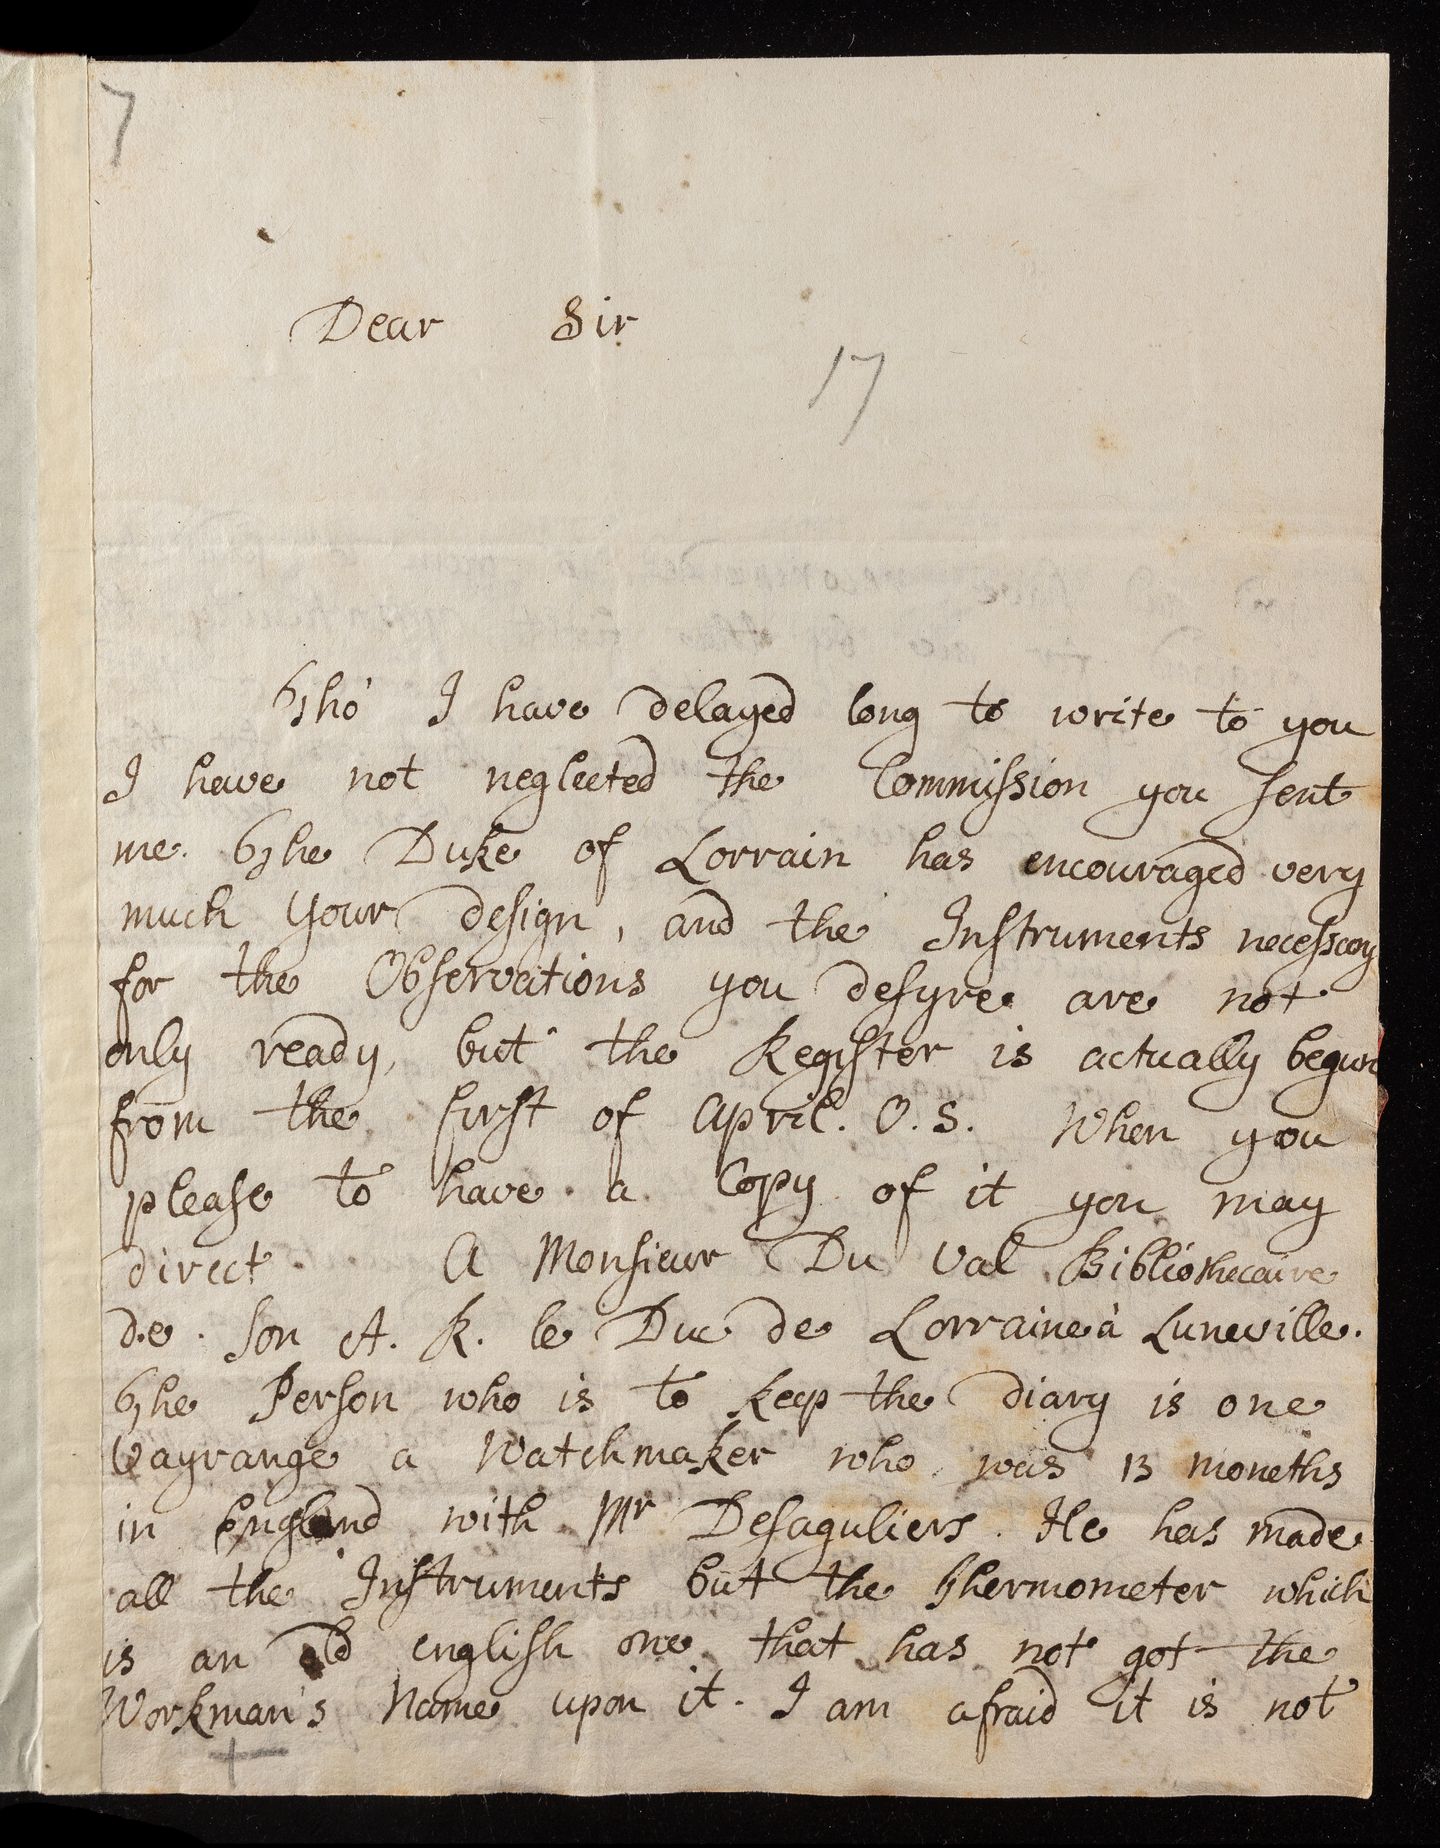 7
Dear Sir
17
Tho' I have delayed long to write to you
I have not neglected the Commission you sent
me. The Duke of Lorrain has encouraged very
much your design, and the Instruments necessary
for the Observations you desyre are not
only ready, but the Register is actually begun
from the first of April. O. S. When you
please to have a Copy of it you may
direct. A Monsieur Du Val Bibliothecaire
de son A. R. le Duc de Lorraine à Luneville.
The Person who is to keep the diary is one
Vayrange a Watchmaker who was 13 moneths
in England with Mr Desaguliers. He has made
all the Instruments but the Thermometer which
is an old english one that has not got the
Workman's Name upon it. I am afraid it is not
+